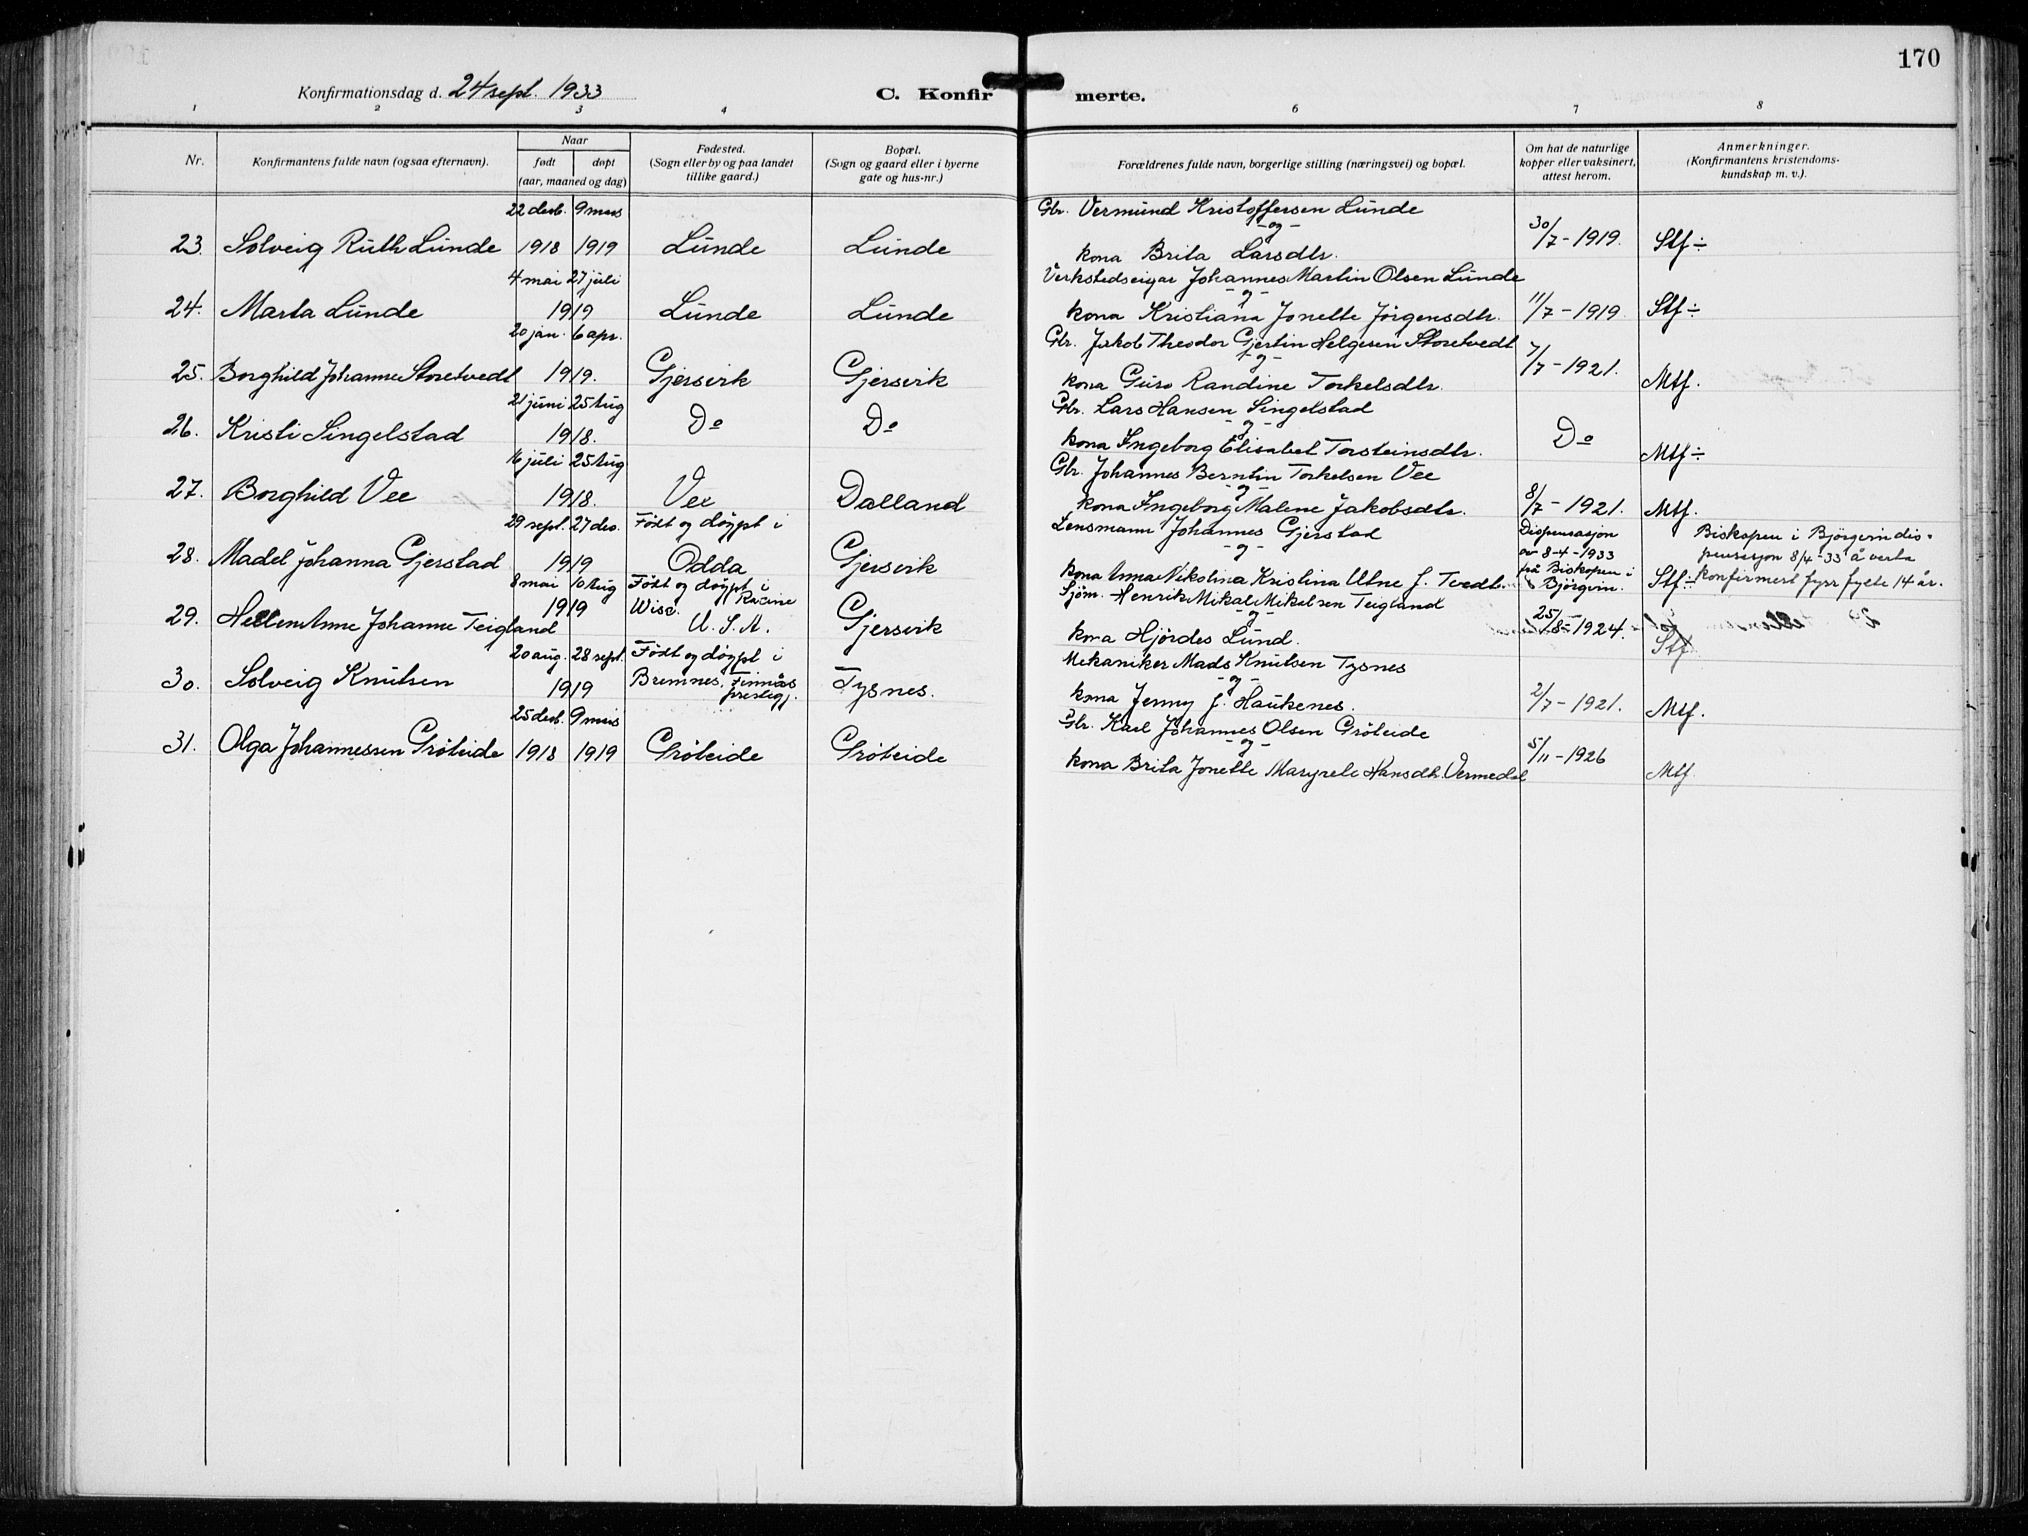 170
Konfirmationsdag d. 24 sept. 1933
C. Konfirmerte.
1 2 3 4 5 6 7 8
Nr.
Konfirmantens fulde navn (ogsaa efternavn).
Naar
født døpt
(aar, maaned og dag)
Fødested.
(Sogn eller by og paa landet
tillike gaard.)
Bopæl.
(Sogn og gaard eller i byerne
gate og hus-nr.)
Forældrenes fulde navn, borgerlige stilling (næringsvei) og bopæl.
Om hat de naturlige
kopper eller vaksinert,
attest herom.
Anmerkninger.
(Konfirmantens kristendoms-
kundskap m. v.).
22 desb. 9 mars Gbr. Vermund Kristoffersen Lunde
-og-
23. Solveig Ruth Lunde 1918 1919 Lunde Lunde kona Brita Larsdtr. 30/7-1919. Stf÷
4 mai 27 juli Verkstedseigar Johannes Martin Olsen Lunde
-og-
24. Marta Lunde 1919 Lunde Lunde kona Kristiana Jonette Jørgensdtr. 11/7-1919. Stf÷
20 jan. 6 apr. Gbr. Jakob Theodor Gjertin Helgesen Storetvedt
-og-
25. Borghild Johanne Storetvedt 1919. Gjersvik Gjersvik kona Guro Randine Torkelsdtr. 7/7-1921. Mtf.
21 juni 25 Aug Gbr. Lars Hansen Singelstad
-og-
26. Kristi Singelstad 1918. Do Do kona Ingeborg Elisabet Torsteinsdtr. Do Mtf÷
16 juli 25 Aug Gbr. Johannes Berntin Torkelsen Vee
-og-
27. Borghild Vee 1918. Vee Dalland kona Ingeborg Malene Jakobsdtr. 8/7-1921. Mtf.
29 sept. 27 des. Född og döypt i Lensmann Johannes Gjerstad Dispensasjon Biskopen i Björgvin dis-
-og- av 8-4-1933 pensasjon 8/4-33 å verta
28. Madel Johanna Gjerstad 1919 Odda Gjersvik kona Anna Nikolina Kristina Utne f. Tvedt. på Biskopen i Björgvin. Stf÷ konfirmert fyrr fylte 14 år.
8 mai 10 Aug Född og döypt i Sjöm. Henrik Mikal Mikalsen Teigland
Wisc. Racine -og-
29. Hellen Anne Johanne Teigland 1919 U.S.A. Gjersvik kona Hjördes Lund. 25/8-1924. Stf
20 aug. 28 sept. Född og döypt i Mekaniker Mads Knutsen Tysnes
-og-
30. Solveig Knutsen 1919 Bremnes, Finnås prestegj. Tysnes. kona Jenny f. Haukenes. 2/7-1921. Mtf.
25 desb. 9 mars Gbr. Karl Johannes Olsen Gröteide
-og-
31. Olga Johannessen Gröteide 1918 1919 Gröteide Gröteide kona Brita Jonette Margrete Hansdtr. Vermedal 5/11-1926 Mtf.